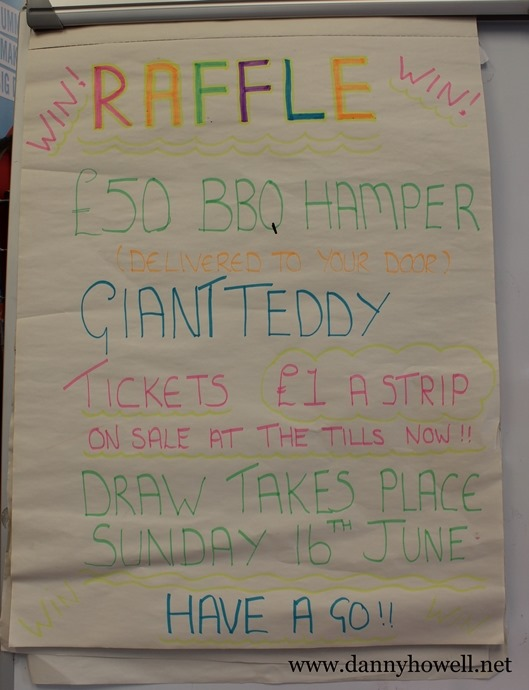 WIN! RAFFLE WIN!
£50 BBQ HAMPER
(DELIVERED TO YOUR DOOR)
GIANT TEDDY
TICKETS £1 A STRIP
ON SALE AT THE TILLS NOW!!
DRAW TAKES PLACE
SUNDAY 16TH JUNE
WIN WIN
HAVE A GO!!
www.dannyhowell.net